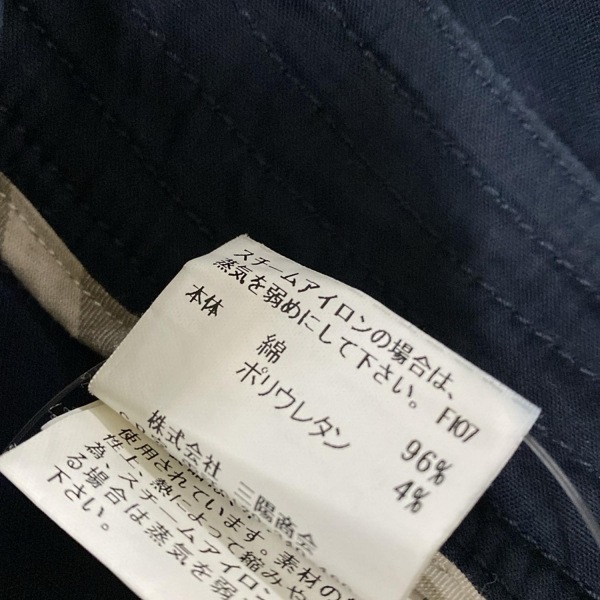 スチームアイロンの場合は、
蒸気を弱めにして下さい。 F107
本体
綿 96%
ポリウレタン 4%
株式会社 三陽商会
使用されています。素材の
性上、熱によって縮みや
為、スチームアイロン
る場合は蒸気を弱
下さい。